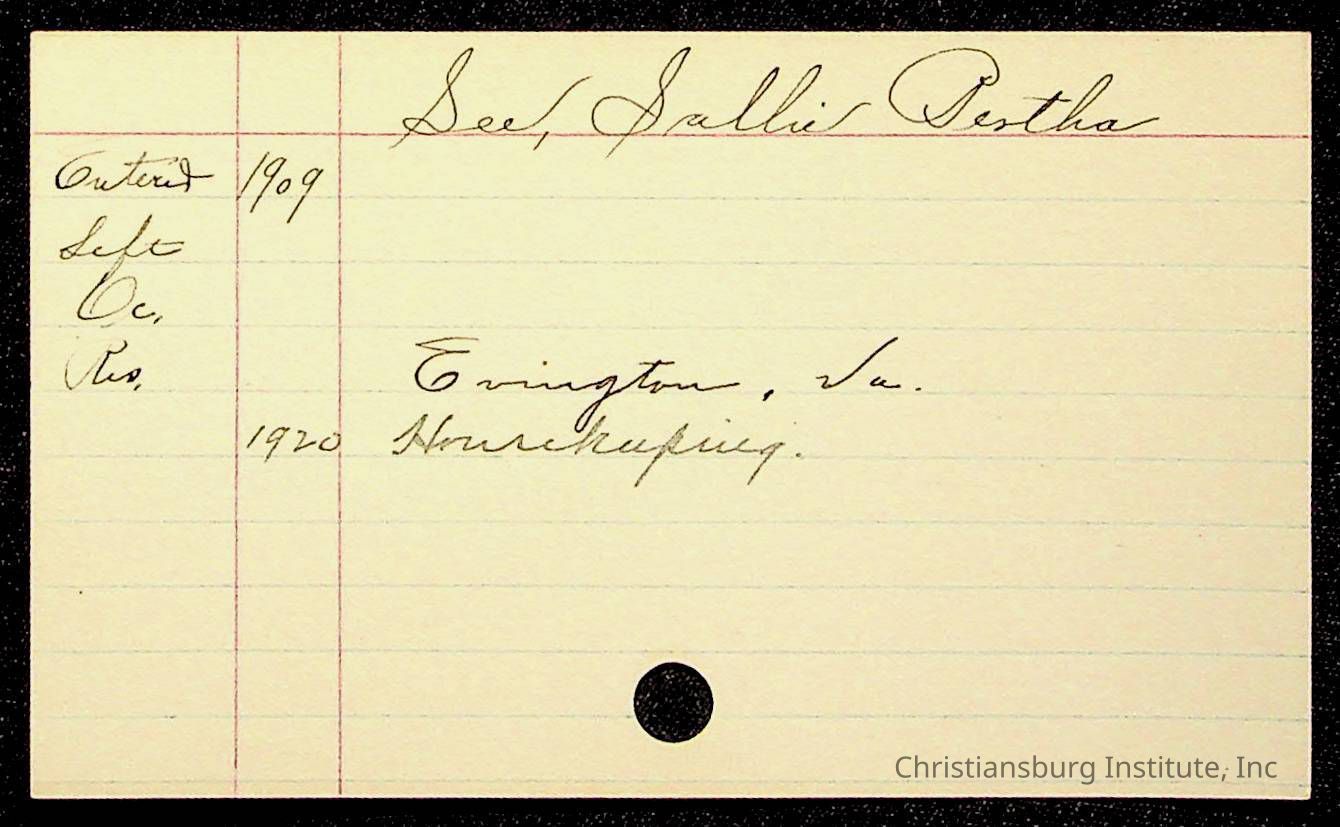 See, Sallie Bertha
Entered 1909
Left
Oc.
Res. Evington, Va.
1920 Housekeeping.
Christiansburg Institute, Inc